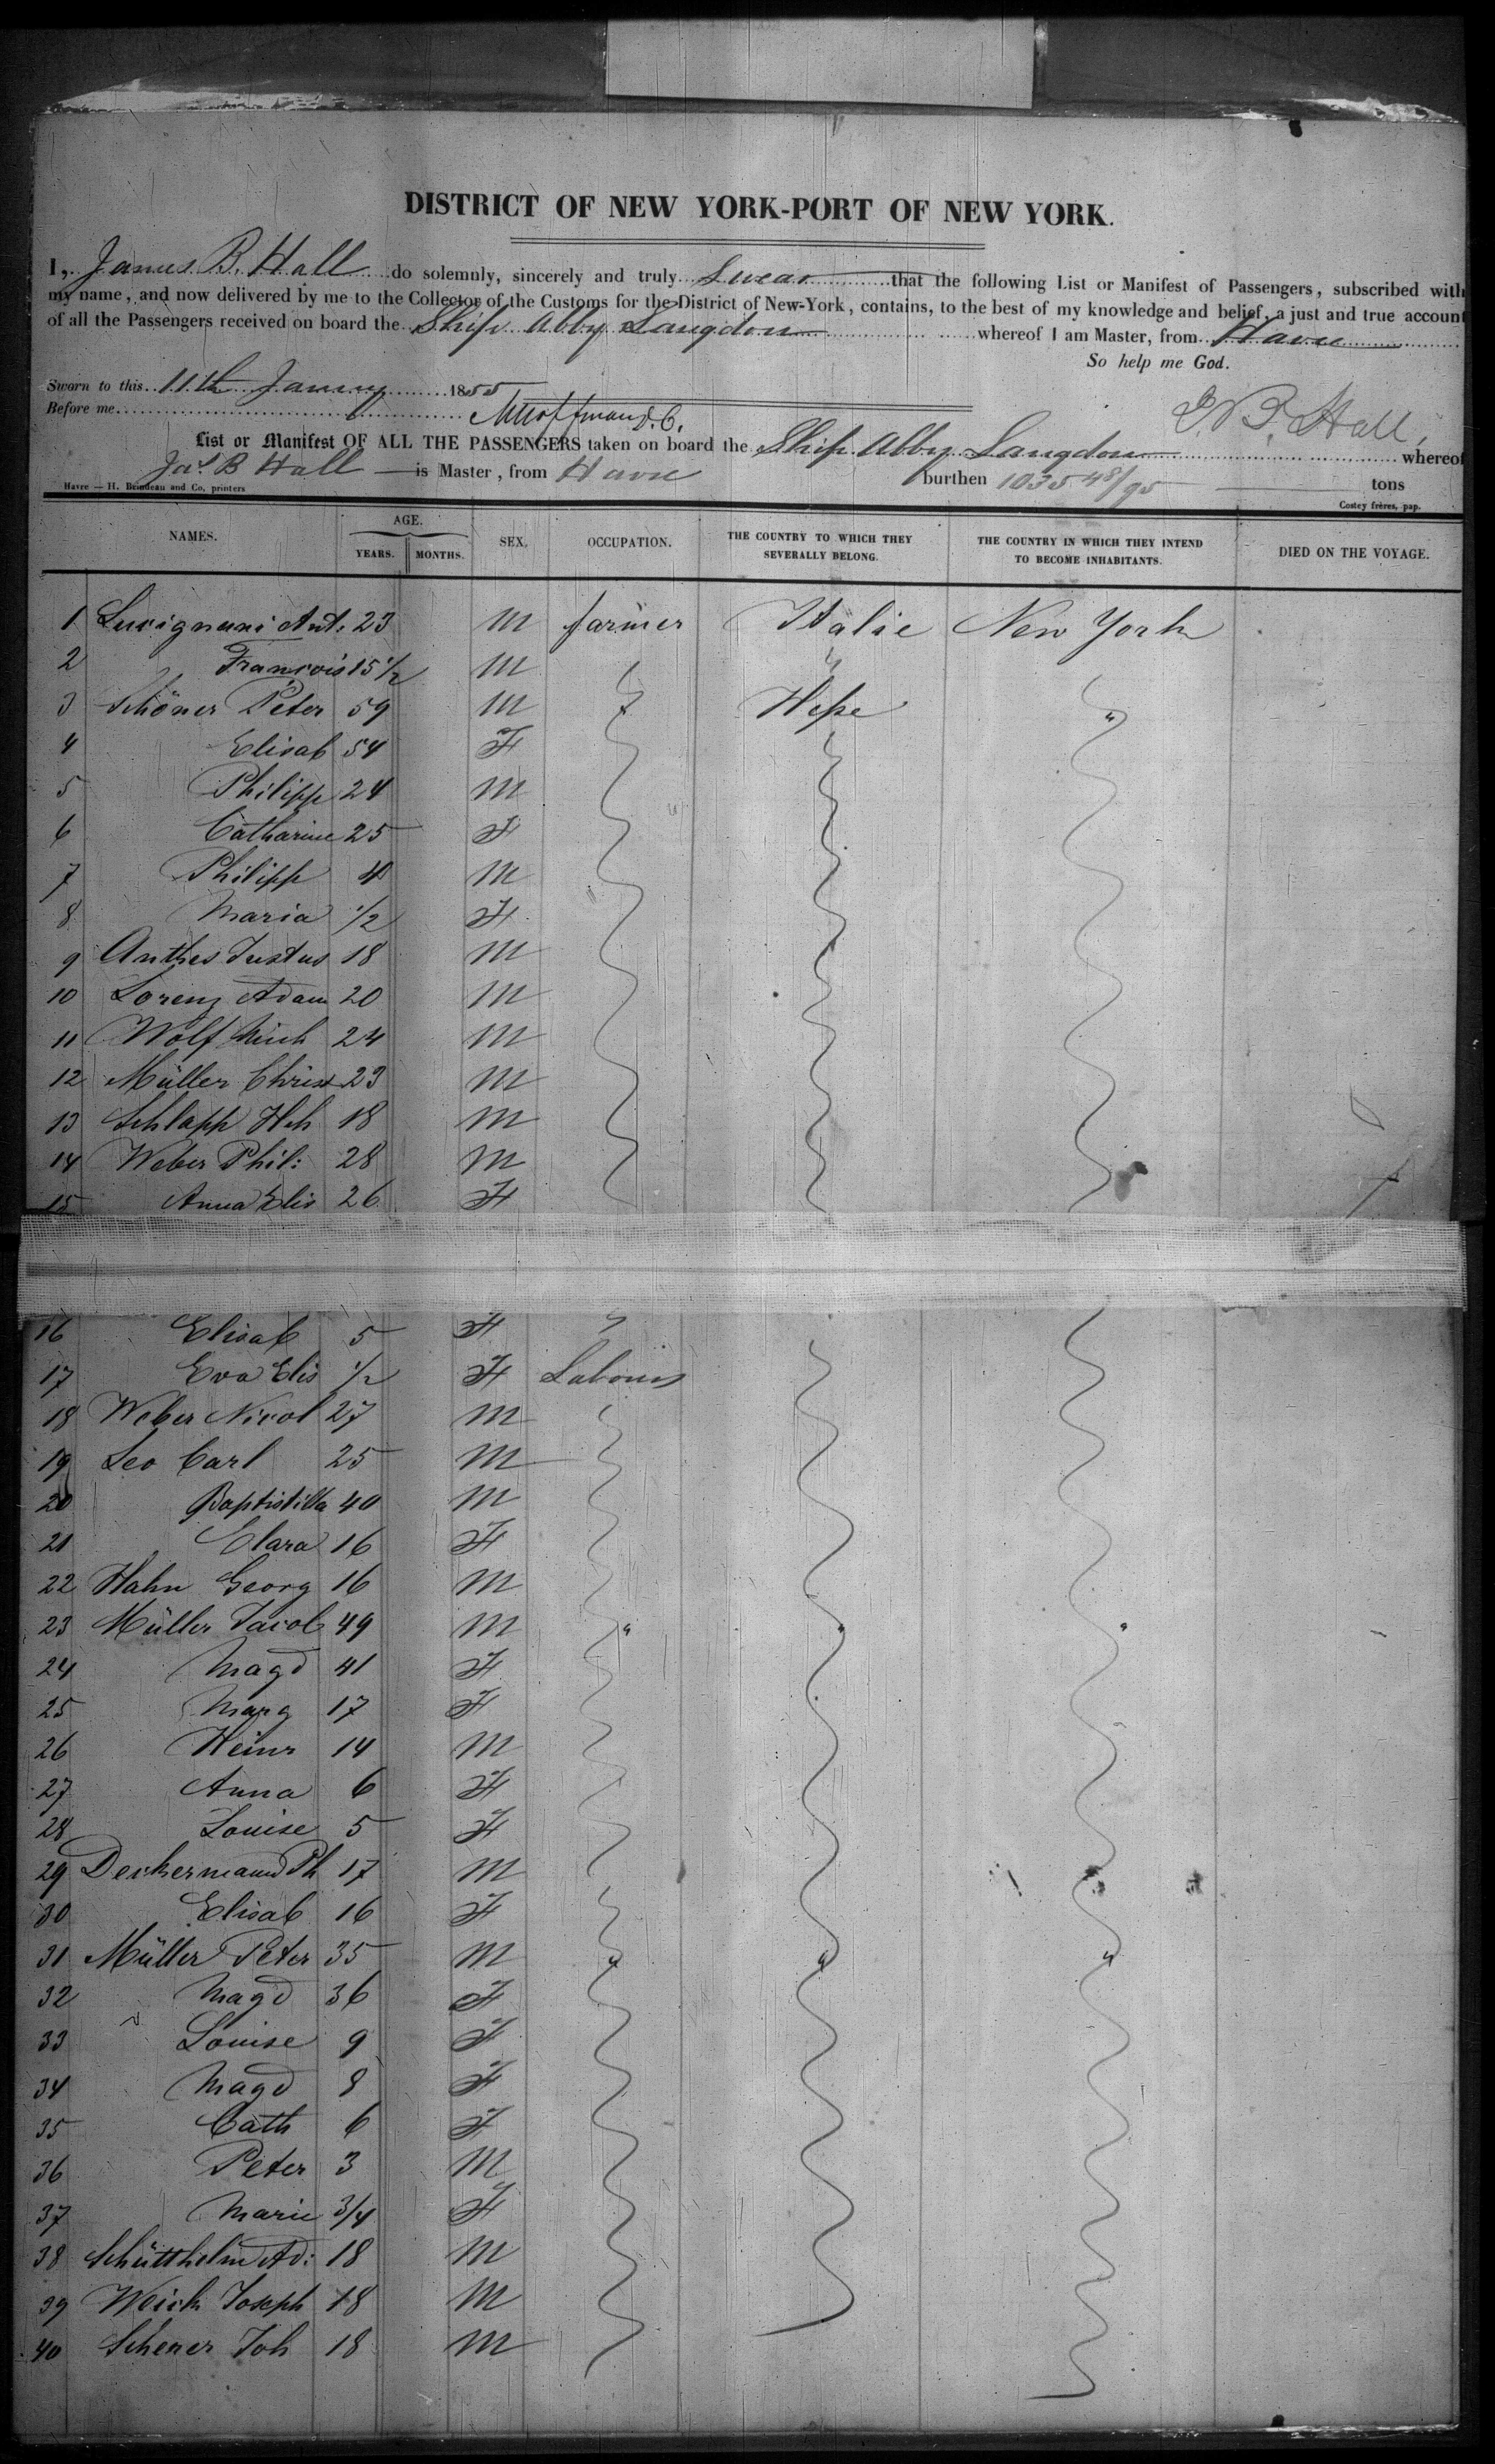 DISTRICT OF NEW YORK-PORT OF NEW YORK.
I, James B. Hall do solemnly, sincerely and truly Swear that the following List or Manifest of Passengers, subscribed with
my name, and now delivered by me to the Collector of the Customs for the District of New-York, contains, to the best of my knowledge and belief, a just and true account
of all the Passengers received on board the Ship Abby Langdon whereof I am Master, from Havre
So help me God.
Sworn to this 11th January 1855
Before me
J. B. Hall,
List or Manifest OF ALL THE PASSENGERS taken on board the Ship Abby Langdon whereof
Jas B Hall is Master, from Havre burthen 1035 48/95 tons
Havre — H. Brindeau and Co, printers
Costey frères, pap.
NAMES. AGE. YEARS. MONTHS. SEX. OCCUPATION. THE COUNTRY TO WHICH THEY SEVERALLY BELONG. THE COUNTRY IN WHICH THEY INTEND TO BECOME INHABITANTS. DIED ON THE VOYAGE.
1 Ant: 23 M farmer Italie New York
2 François 15 1/2 M "
3 Schöner Peter 59 M " Hesse "
4 Elisab 54 F
5 Philipp 24 M
6 Catharine 25 F
7 Philipp 4 M
8 Maria 1/2 F
9 Anthes Justus 18 M
10 Lorenz Adam 20 M
11 Wolf Mich 24 M
12 Müller Christ 23 M
13 Schlapp Hch 18 M
14 Weber Phil: 28 M
15 Anna Elis 26 F
16 Elisab 5 F "
17 Eva Elis 1/2 F Labourer
18 Weber Nicol 27 M
19 Leo Carl 25 M
20 40 M
21 Clara 16 F
22 Hahn Georg 16 M
23 Müller Jacob 49 M " " "
24 Magd 41 F
25 Marg 17 F
26 Heinr 14 M
27 Anna 6 F
28 Louise 5 F
29 Deckermann Ph 17 M
30 Elisab 16 F
31 Müller Peter 35 M " " "
32 Magd 36 F
33 Louise 9 F
34 Magd 8 F
35 Cath 6 F
36 Peter 3 M
37 Marie 3/4 F
38 Schütthelm Ad: 18 M
39 Weick Joseph 18 M
40 Scherer Joh 18 M